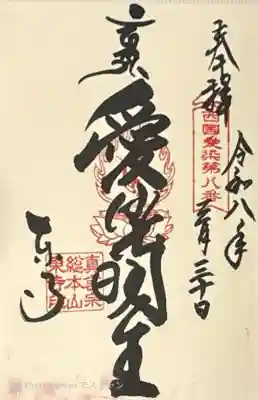 奉拝
西国愛染第八番
令和八年
愛染明王
東寺
真言宗
総本山
東寺印